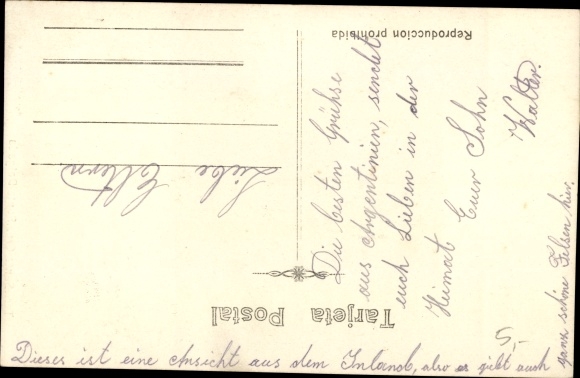 Tarjeta Postal
Reproduccion prohibida
Liebe Eltern
Die besten Grühse
aus Argentinien, sendet
euch Lieben in der
Heimat Euer Sohn
Walter.
Dieses ist eine Ansicht aus dem Inland, also es giebt auch
ganz schöne Felsen hier.
5,-